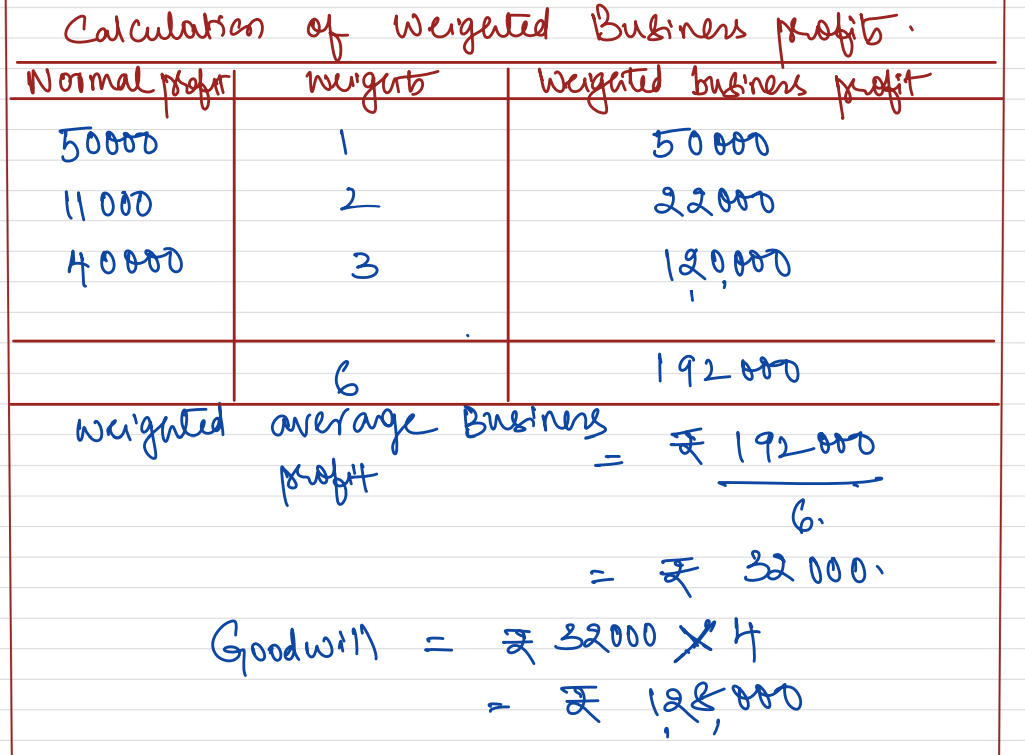 Calculation of Weighted Business profits.
Normal profit weights Weighted business profit
50000 1 50000
11000 2 22000
40000 3 1,20,000
6 192000
weighted average Business profit = ₹ 192000
6.
= ₹ 32000.
Goodwill = ₹ 32000 X 4
= ₹ 1,28,000